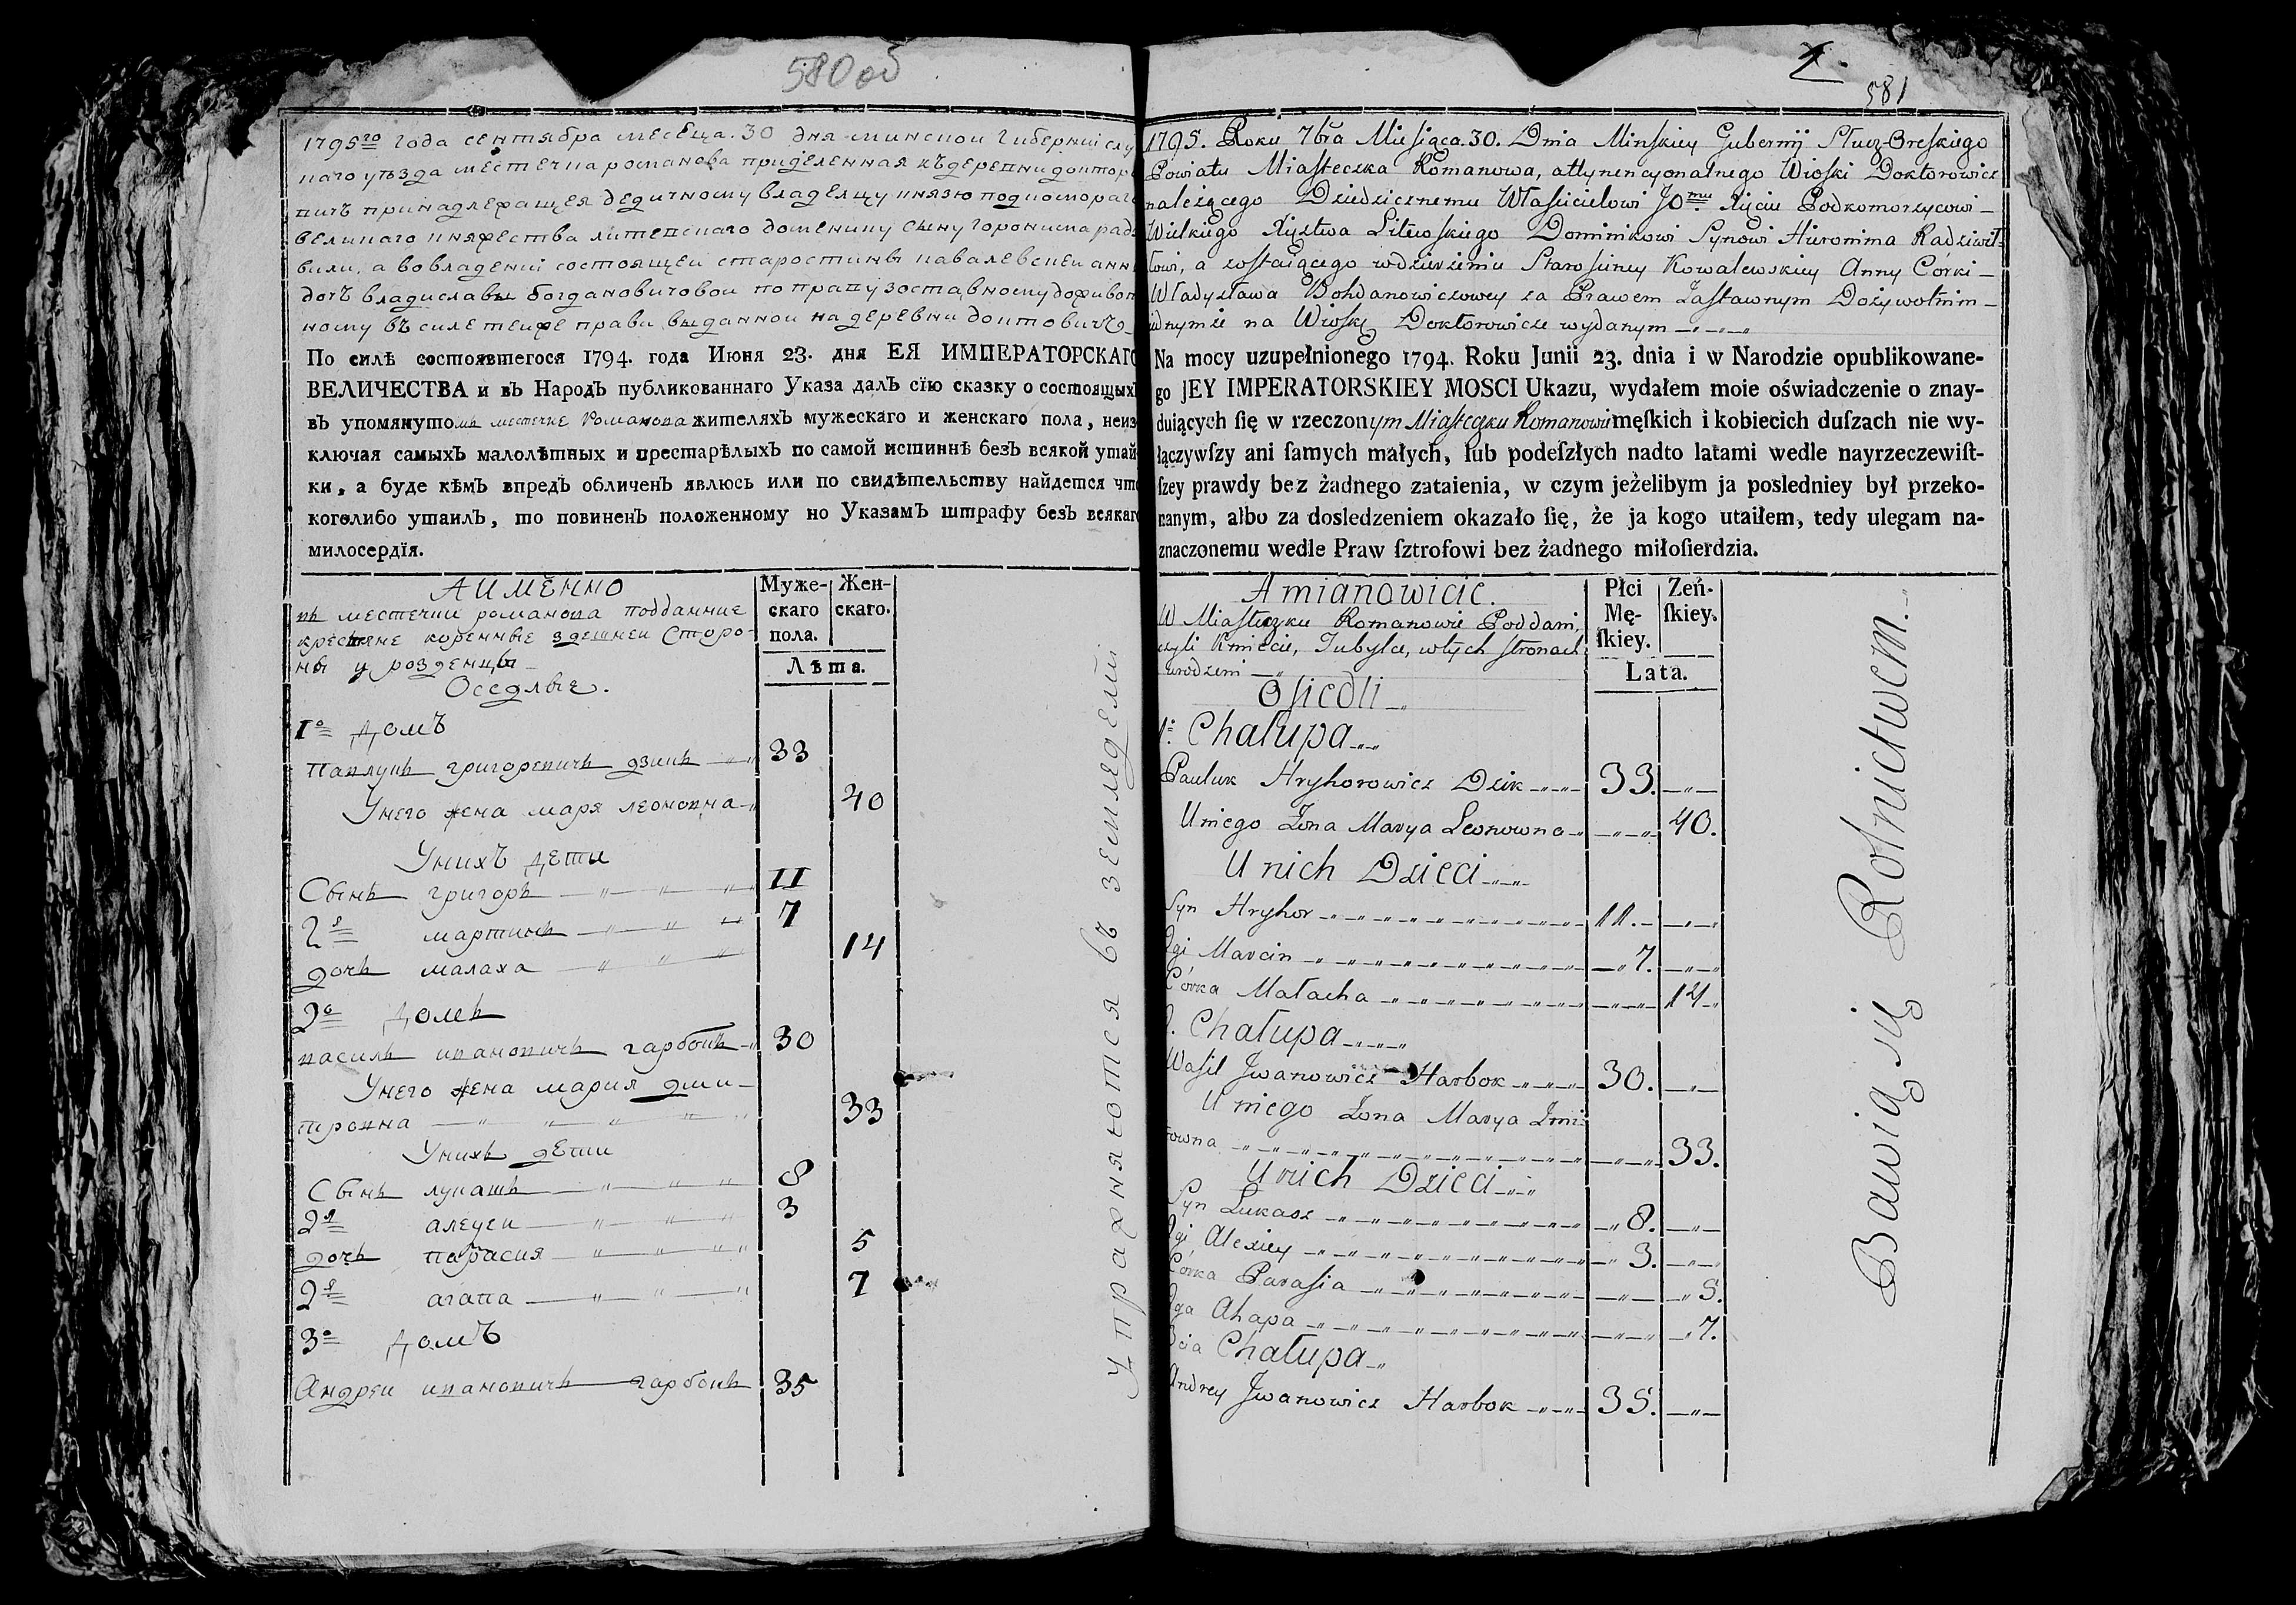 580 об
1795го года сентября месеца. 30 дня минской губернии слу
цкаго уезда местечка романова приделенная къ деревни доктор
вичъ принадлежащея дедичному владелцу князю подкомораго
великаго княжества литевскаго доменику сыну горонима радз
вили, а во владении состоящей старостины кавалевской анн
дочъ владиславы богдановичовой по праву заставному доживот
ному въ силе тейже права выданной на деревни доктовичъ
По силѣ состоявшегося 1794. года Июня 23. дня ЕЯ ИМПЕРАТОРСКАГО
ВЕЛИЧЕСТВА и въ НародЪ публикованнаго Указа далЪ сїю сказку о состоящыхЪ
въ упомянутомъ местечке Романова жителяхЪ мужескаго и женскаго пола, неиз
ключая самыхЪ малолѣтныхъ и престарѣлыхЪ по самой истиннѣ безЪ всякой утай
ки, а буде кѣмЪ впредЪ обличенЪ явлюсь или по свидѣтельству найдется что
коголибо утаилЪ, то повиненЪ положенному по УказамЪ штрафу безЪ всякаго
милосердїя.
А ИМЕННО
въ местечки романова подданние
крестяне коренные здешней сторо-
ны урозденцы
Оседлые.
Муже-
скаго
пола.
Жен-
скаго.
Лѣта.
1о домЪ
павлукъ григоревичъ дзикъ 33
Унего жена маря леоновна 40
УнихЪ дети
Сынъ григоръ 11
2й мартинъ 7
дочъ малаха 14
2о домъ
василь ивановичъ гарбокъ 30
Унего жена мария дми-
тровна 33
Унихъ дети
Сынъ лукашъ 8
2й алеусеи 3
дочъ парасия 5
2я агапа 7
3о домЪ
Андреи ивановичъ гарбокъ 35
Упражняются въ земледелии
2.
581
1795. Roku 7bra Miesiąca. 30. Dnia Minskiey Gubernij Słucz-Oreskiego
Powiatu Miasteczka Romanowa, attynencyonalnego Wioski Doktorowicz
należącego Dziedzicznemu Właścicielowi JOmu. Xięciu Podkomorzycowi
Wielkiego Xięztwa Litewskiego Dominikowi Synowi Hieronima Radziwił-
łowi, a zostaiącego w dzierżeniu Starościney Kowalewskiey Anny Córki
Władysława Bohdanowiczowey za Prawem Zastawnym Dożywotnim
idnymże na Wioskę Doktorowicze wydanym
Na mocy uzupełnionego 1794. Roku Junii 23. dnia i w Narodzie opublikowane-
go JEY IMPERATORSKIEY MOSCI Ukazu, wydałem moie oświadczenie o znay-
duiących ſię w rzeczonym Miasteczku Romanowie męſkich i kobiecich duſzach nie wy-
łączywſzy ani ſamych małych, lub podeſzłych nadto latami wedle nayrzeczewiſt-
ſzey prawdy bez żadnego zataienia, w czym jeżelibym ja posledniey był przeko-
nanym, albo za dosledzeniem okazało ſię, że ja kogo utaiłem, tedy ulegam na-
znaczonemu wedle Praw ſztrofowi bez żadnego miłoſierdzia.
A mianowicie.
W Miasteczku Romanowie Poddani,
czyli Kmiecie, Tubylce, w tych stronach
urodzeni
Osiedli
Płci
Mę-
ſkiey.
Zeń-
ſkiey.
Lata.
1o. Chałupa
Pauluk Hryhorowicz Dzik 33.
U niego Żona Marya Leonowna 40.
U nich Dzieci
Syn Hryhor 11.
2gi Marcin 7.
Córka Małacha 14
2. Chałupa
Wasil Jwanowicz Harbok 30.
U niego Żona Marya Dmi-
trowna 33.
U nich Dzieci
Syn Łukasz 8.
2gi Alexiey 3.
Córka Parasia 5.
2ga Ahapa 7.
3cia Chałupa
Andrey Jwanowicz Harbok 35.
Bawią się Rolnictwem.